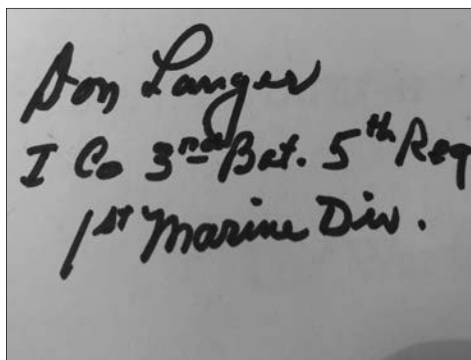 Don Langer
I Co 3rd Bat. 5th Reg
1st Marine Div.